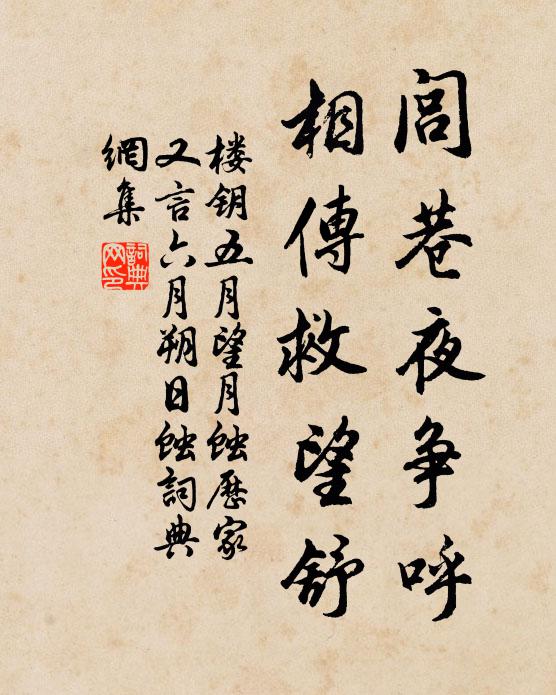 闾巷夜争呼
相傳救望舒
楼钥五月望月蝕歷家
又言六月朔日蝕詞典
網集
詞典
网印